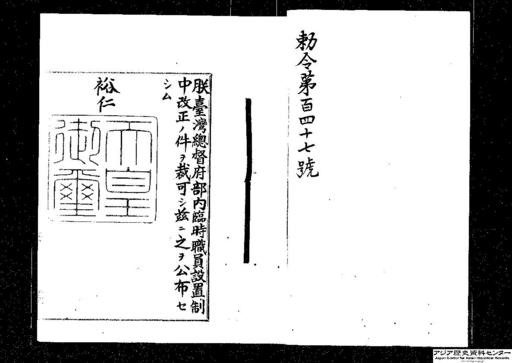 勅令第百四十七號
朕臺灣總督府部內臨時職員設置制
中改正ノ件ヲ裁可シ茲ニ之ヲ公布セ
シム
裕仁
天皇
御璽
アジア歴史資料センター
Japan Center for Asian Historical Records